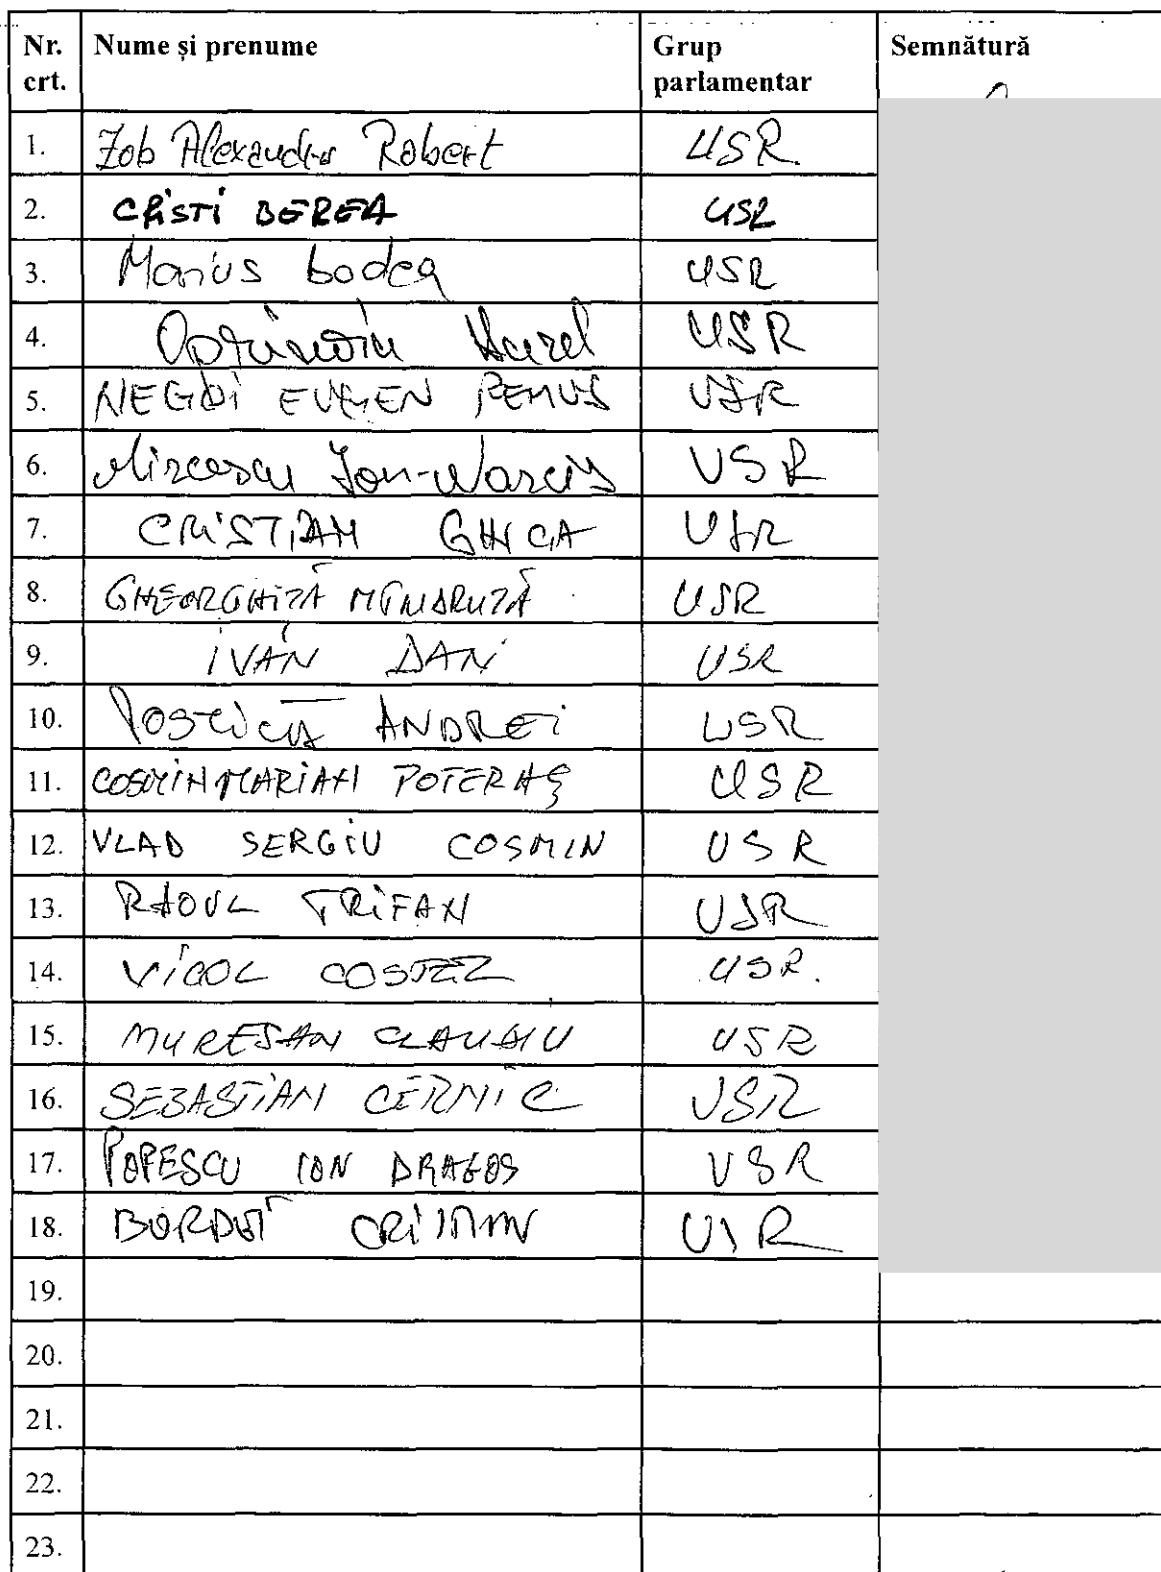 Nr. crt. Nume și prenume Grup parlamentar Semnătură
1. Zob Alexandru Robert USR
2. CRISTI BEREA USR
3. Marius Bodea USR
4. Oprinoiu Aurel USR
5. NEGOI EUGEN REMUS USR
6. Mircescu Ion-Narcis USR
7. CRISTIAN GHICA USR
8. GHEORGHIȚĂ MÎNDRUȚĂ USR
9. IVAN DAN USR
10. POSTICĂ ANDREI USR
11. COSMIN MARIAN POTERAȘ USR
12. VLAD SERGIU COSMIN USR
13. RAOUL TRIFAN USR
14. VICOL COSTEL USR.
15. MURESAN CLAUDIU USR
16. SEBASTIAN CERNIC USR
17. POPESCU ION DRAGOS USR
18. CRISTIAN USR
19.
20.
21.
22.
23.